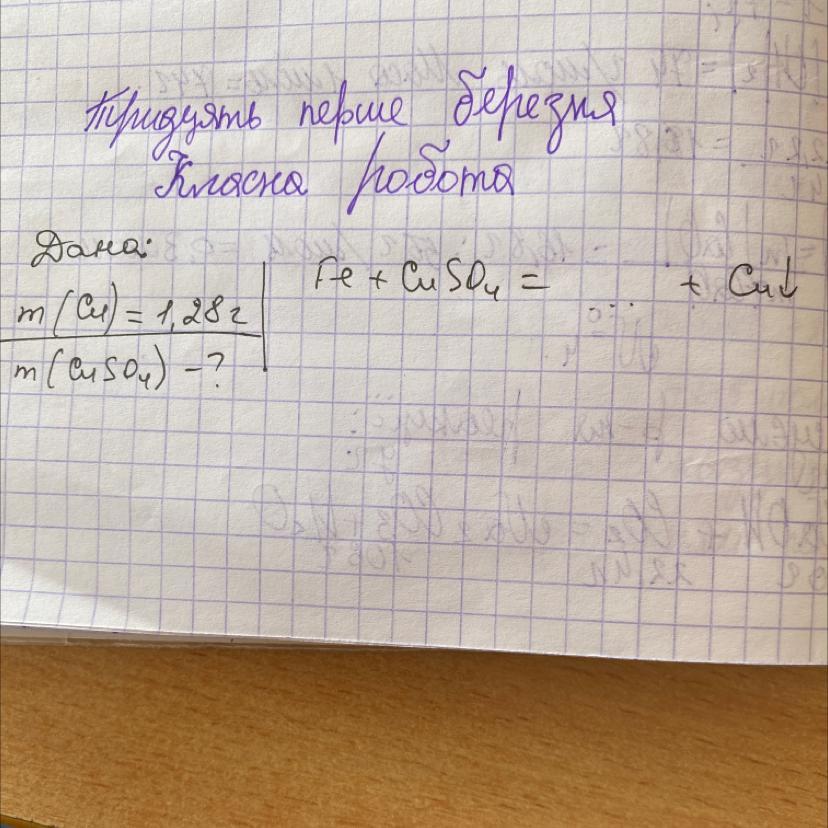 Тридцять перше березня
Класна робота
Дано:
m(Cu) = 1,28г
m(CuSO₄) - ?
Fe + CuSO₄ = + Cu↓